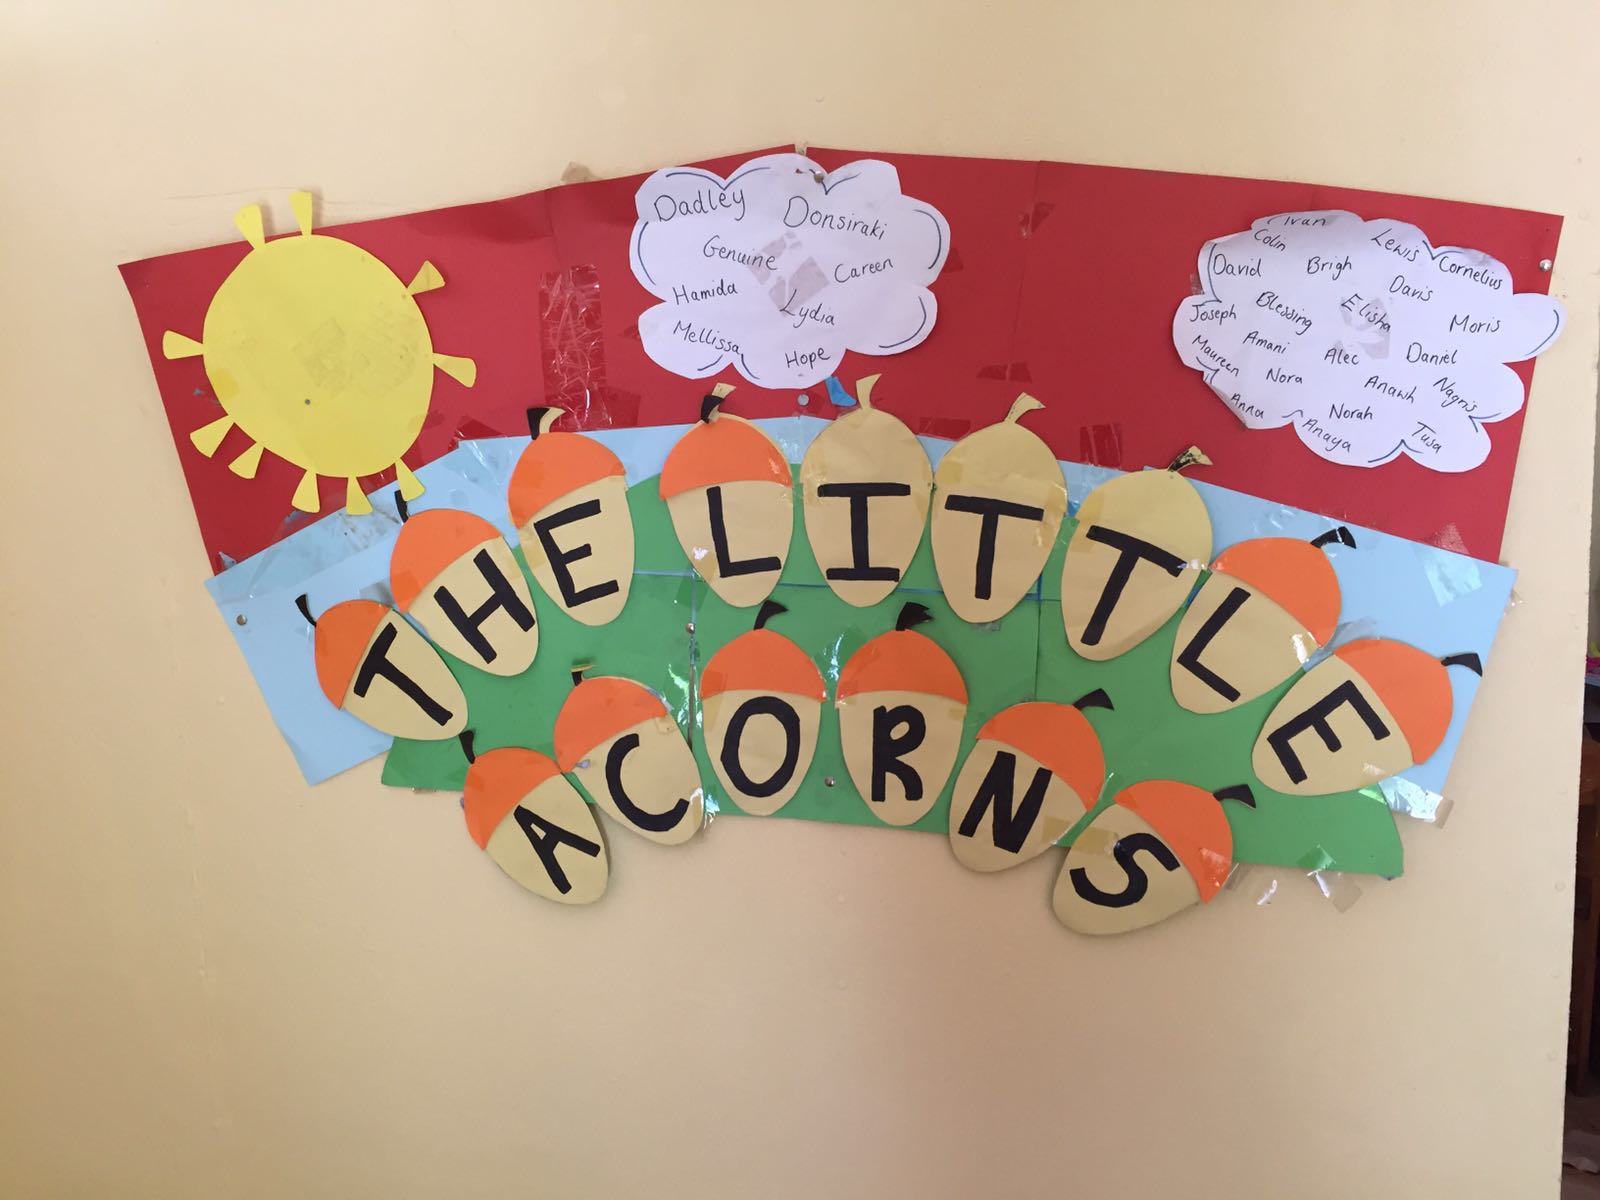 Dadley Donsiraki
Genuine Careen
Hamida Lydia
Mellissa Hope
Ivan Lewis
Colin Cornelius
David Brigh Davis
Joseph Blessing Elisha Moris
Maureen Amani Alec Daniel
Nora Anawh Nagris
Anna Norah
Anaya Tusa
THE LITTLE
ACORNS